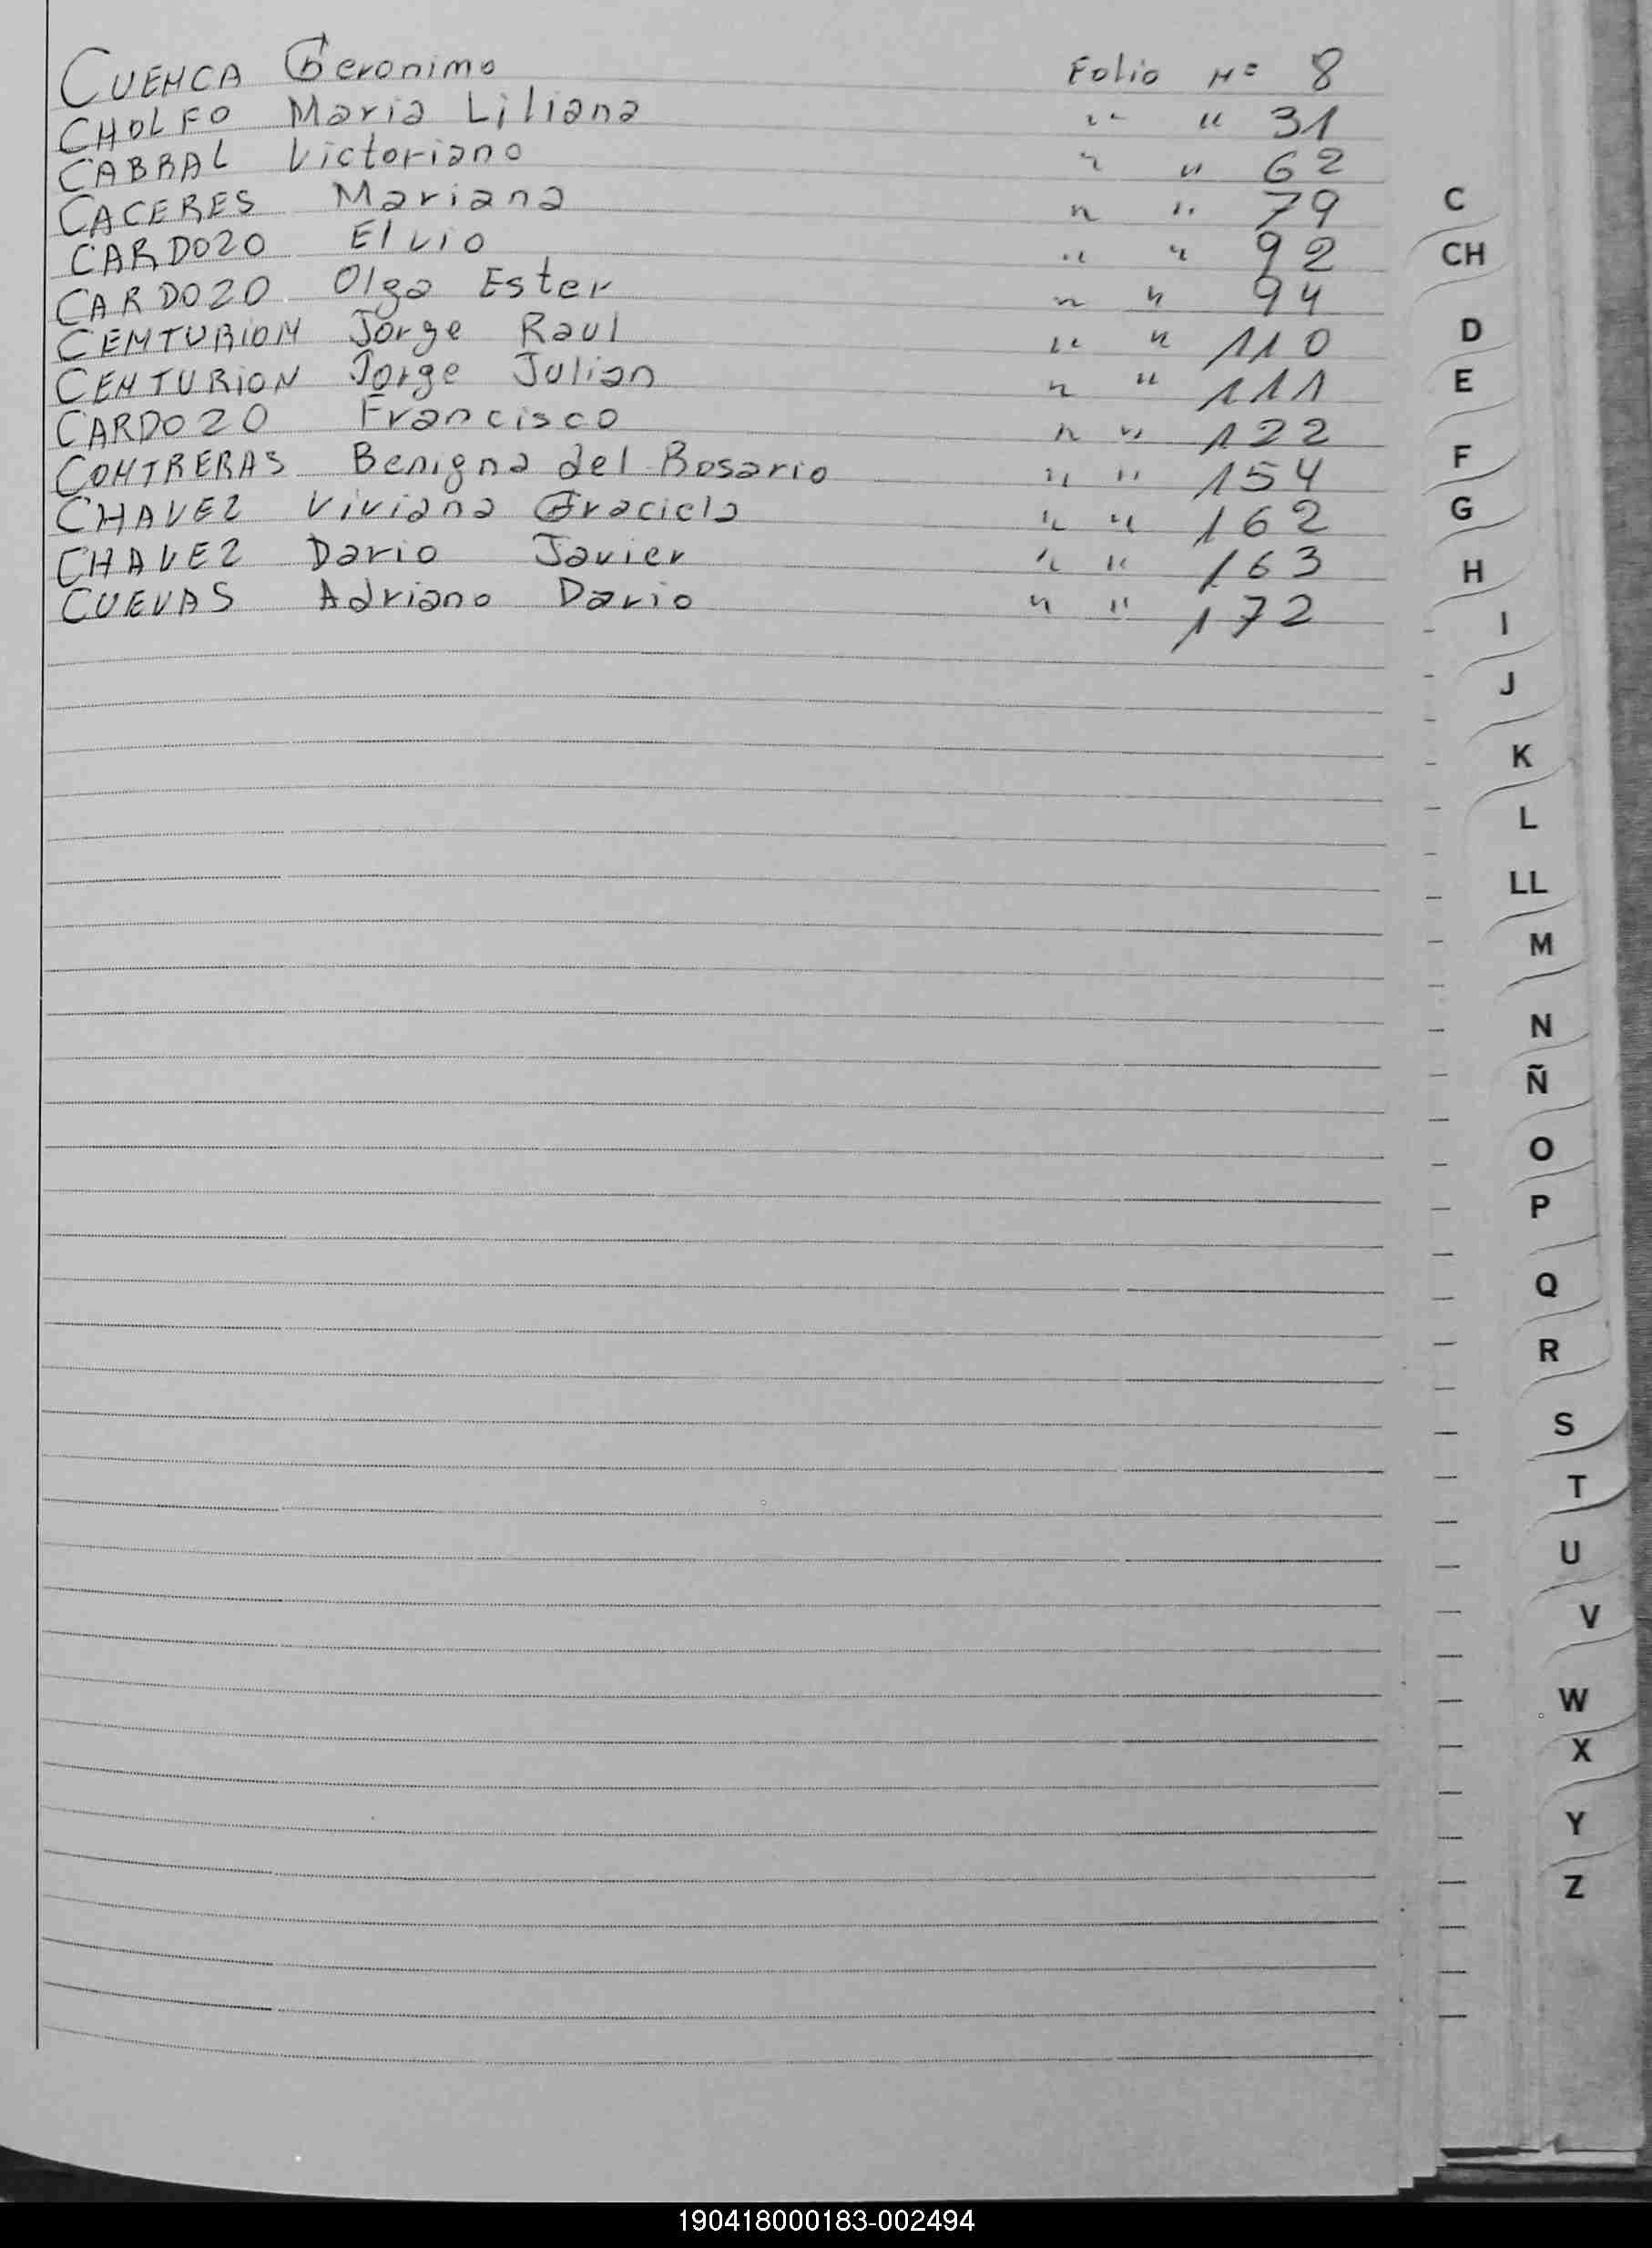 CUENCA Geronimo Folio Nº 8
CHOLFO Maria Liliana " " 31
CABRAL Victoriano " " 62
CACERES Mariana " " 79
CARDOZO Elvio " " 92
CARDOZO Olga Ester " " 94
CENTURION Jorge Raul " " 110
CENTURION Jorge Julian " " 111
CARDOZO Francisco " " 122
CONTRERAS Benigna del Rosario " " 154
CHAVEZ Viviana Graciela " " 162
CHAVEZ Dario Javier " " 163
CUEVAS Adriano Dario " " 172
C
CH
D
E
F
G
H
I
J
K
L
LL
M
N
Ñ
O
P
Q
R
S
T
U
V
W
X
Y
Z
190418000183-002494